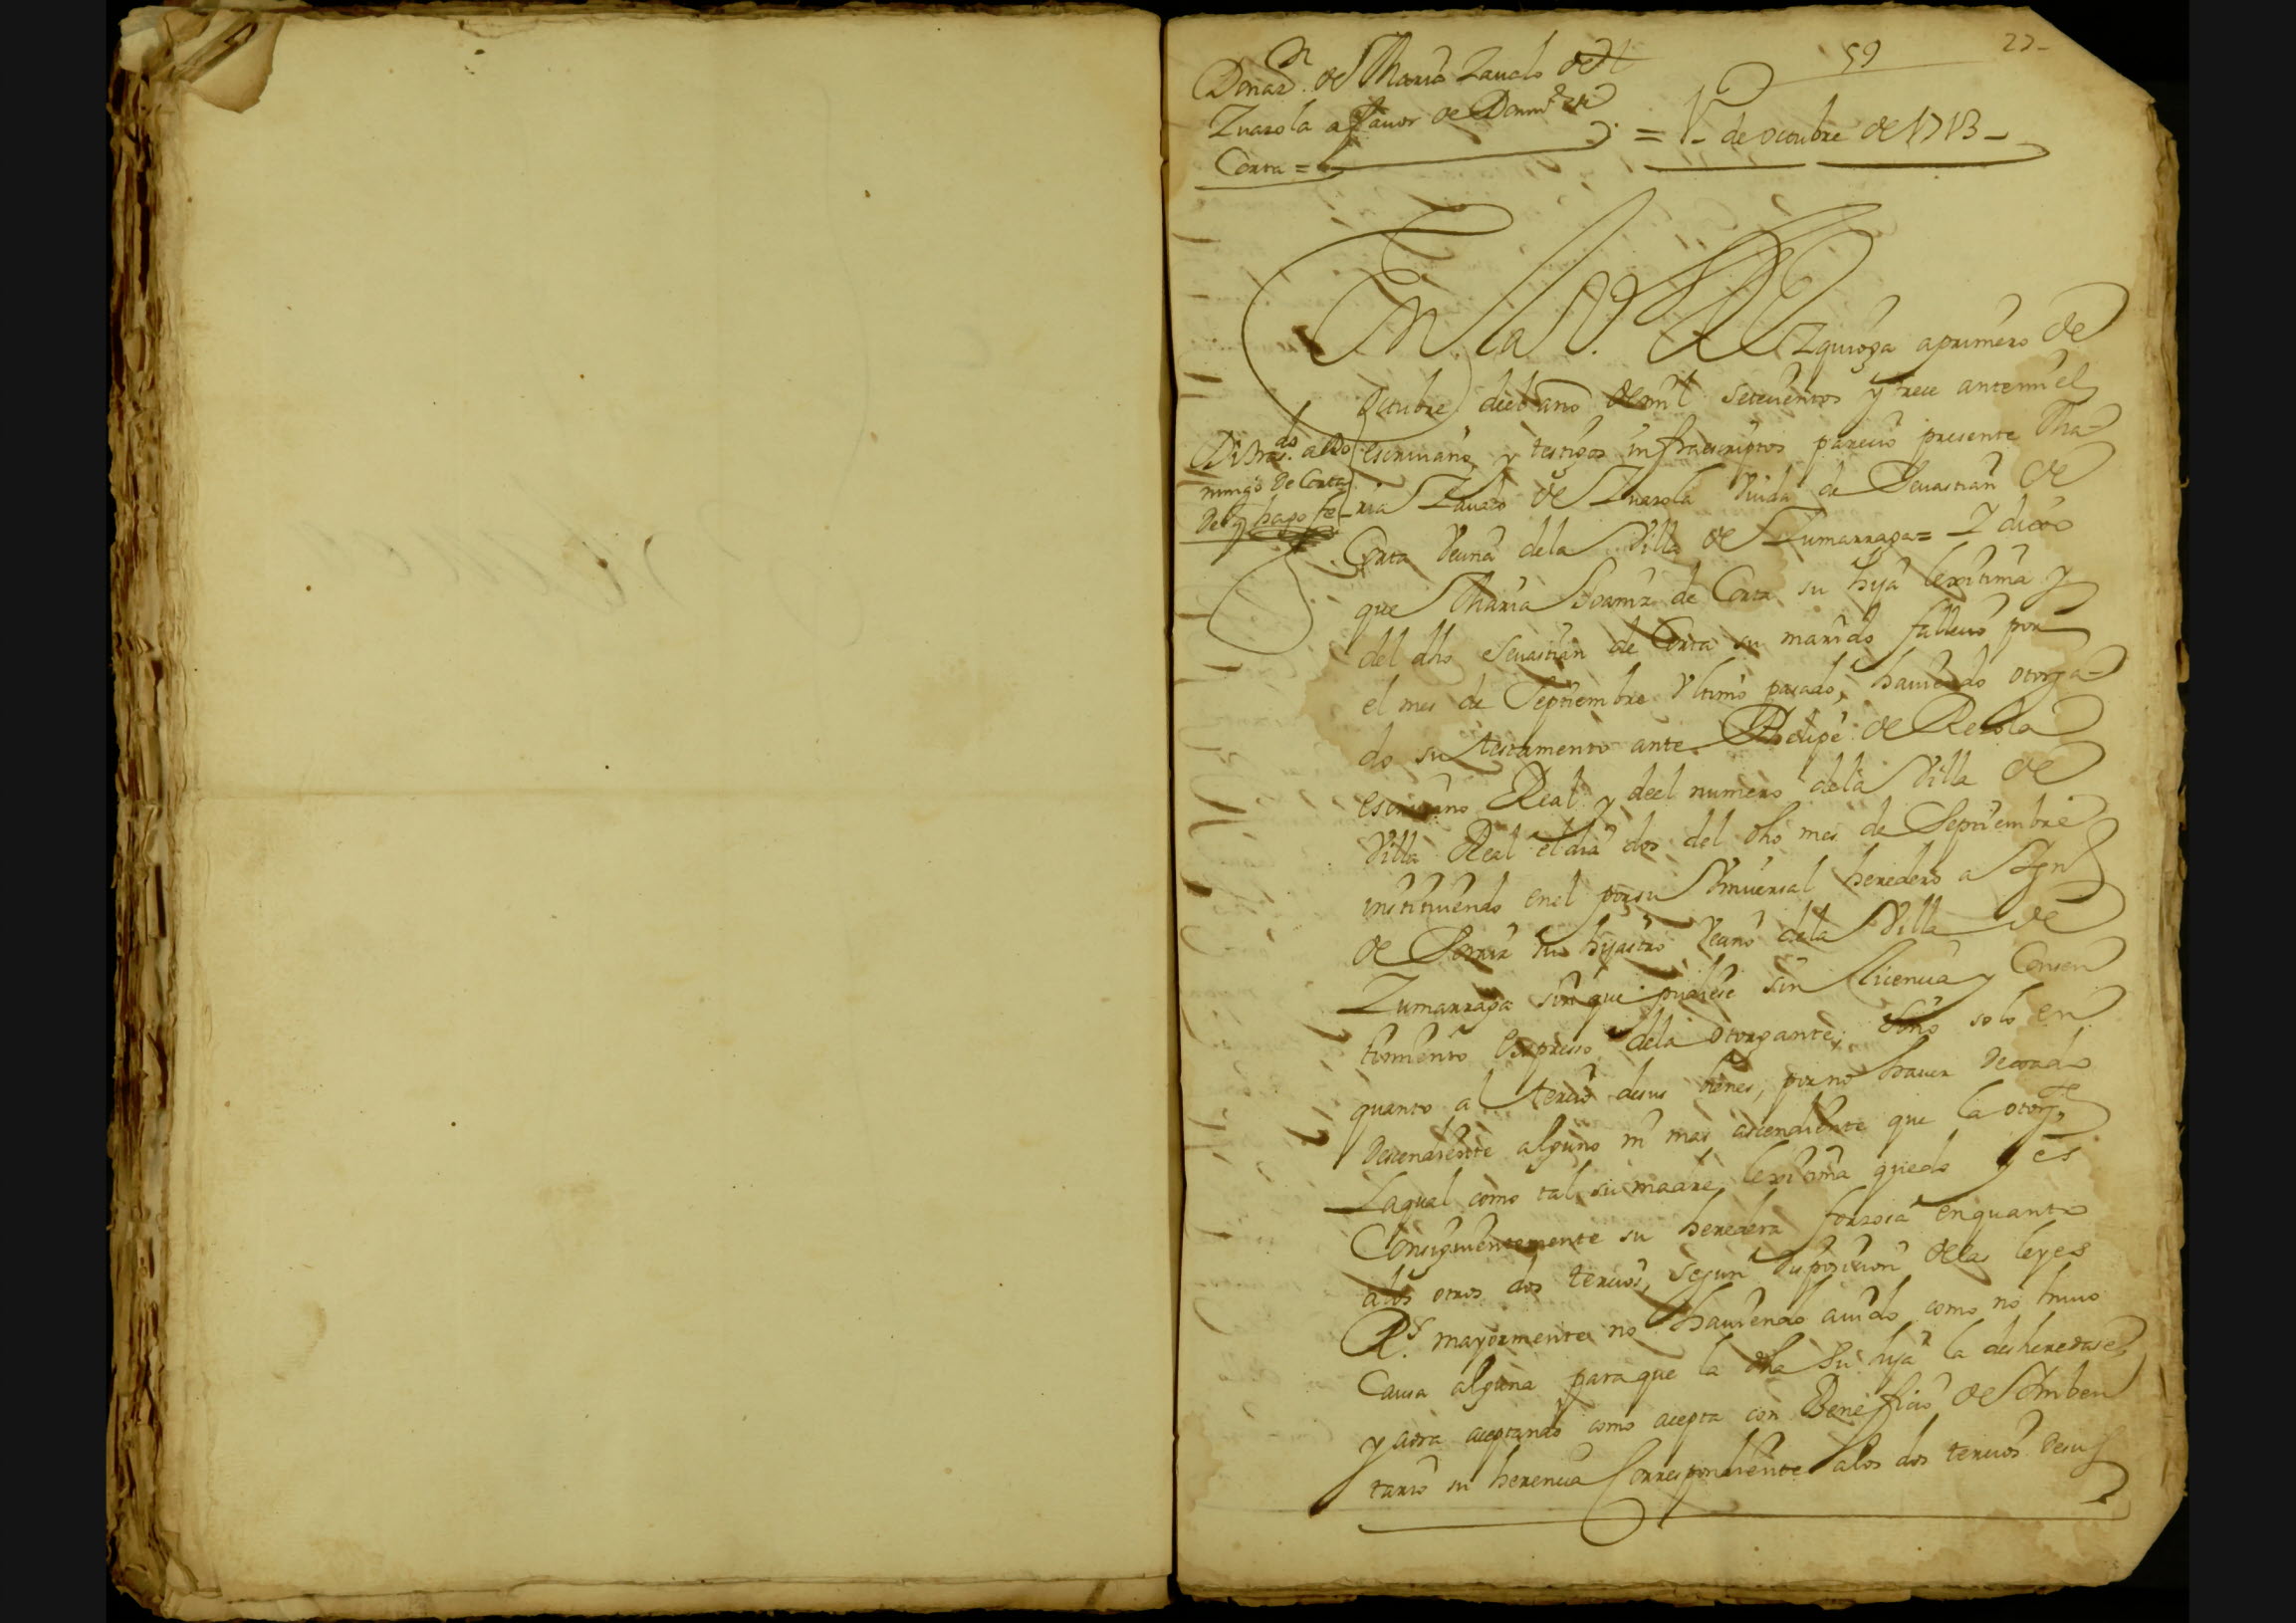 59
22
Donaz.n de Maria Zaualo de
Zuazola a fauor de Dom.o de
Corta =
= 1.o de octubre de 1713 =
En la V.a de Azquoga a primero de
octubre del año de mil setecientos y trece ante mi el
escriuano y testigos infraescriptos parecio presente Ma-
ria Zaualo de Zuazola Viuda de Seuastian de
Corta Vecina de la Villa de Zumarraga = Y dixo
que Maria de Corta su hija lexitima y
del dho Seuastian de Corta su marido fallecio por
el mes de Septiembre Vltimo pasado, hauiendo otorga-
do su testamento ante Phelipe de
escriuano Real y del numero de la Villa de
Villa Real el dia dos del dho mes de Septiembre
instituiendo en el por su Vniuersal heredero a Agn
de su hijastro Vecino de la Villa de
Zumarraga sin que pudiese sin licencia y Consen
timiento expresso de la otorgante, sino solo en
quanto al tercio de sus bienes, por no hauer dexado
Descendiente alguno ni mas ascendiente que la otorg.te
La qual como tal su madre lexitima quedo y es
Consiguientemente su heredera forzosa en quanto
a los otros dos tercios, segun disposicion de las leyes
R.s mayormente no hauiendo auido como no huuo
Causa alguna para que la dha su hija la desheredase
y aora aceptando como acepta con Beneficio de Ynben
tario su herencia Correspondiente a los dos tercios de su
Di tras.do a Do
mingo de Corta
de q hago fe